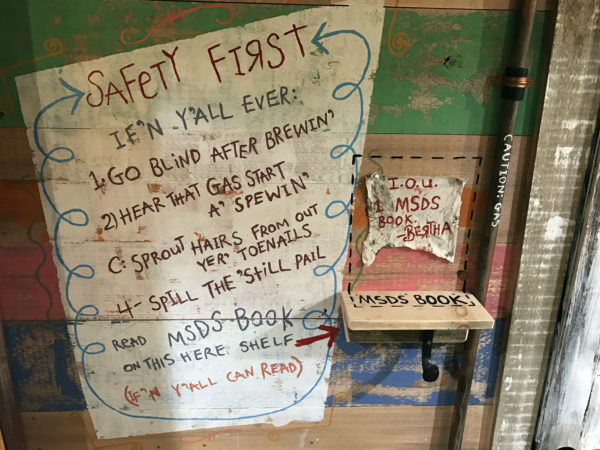 SAFETY FIRST
IF'N Y'ALL EVER:
1. GO BLIND AFTER BREWIN'
2) HEAR THAT GAS START
A' SPEWIN'
C: SPROUT HAIRS FROM OUT
YER' TOENAILS
4- SPILL THE 'STILL PAIL
READ MSDS BOOK
ON THIS HERE SHELF
(IF'N Y'ALL CAN READ)
I.O.U.
1 MSDS
BOOK
-BERTHA
MSDS BOOK
CAUTION: GAS